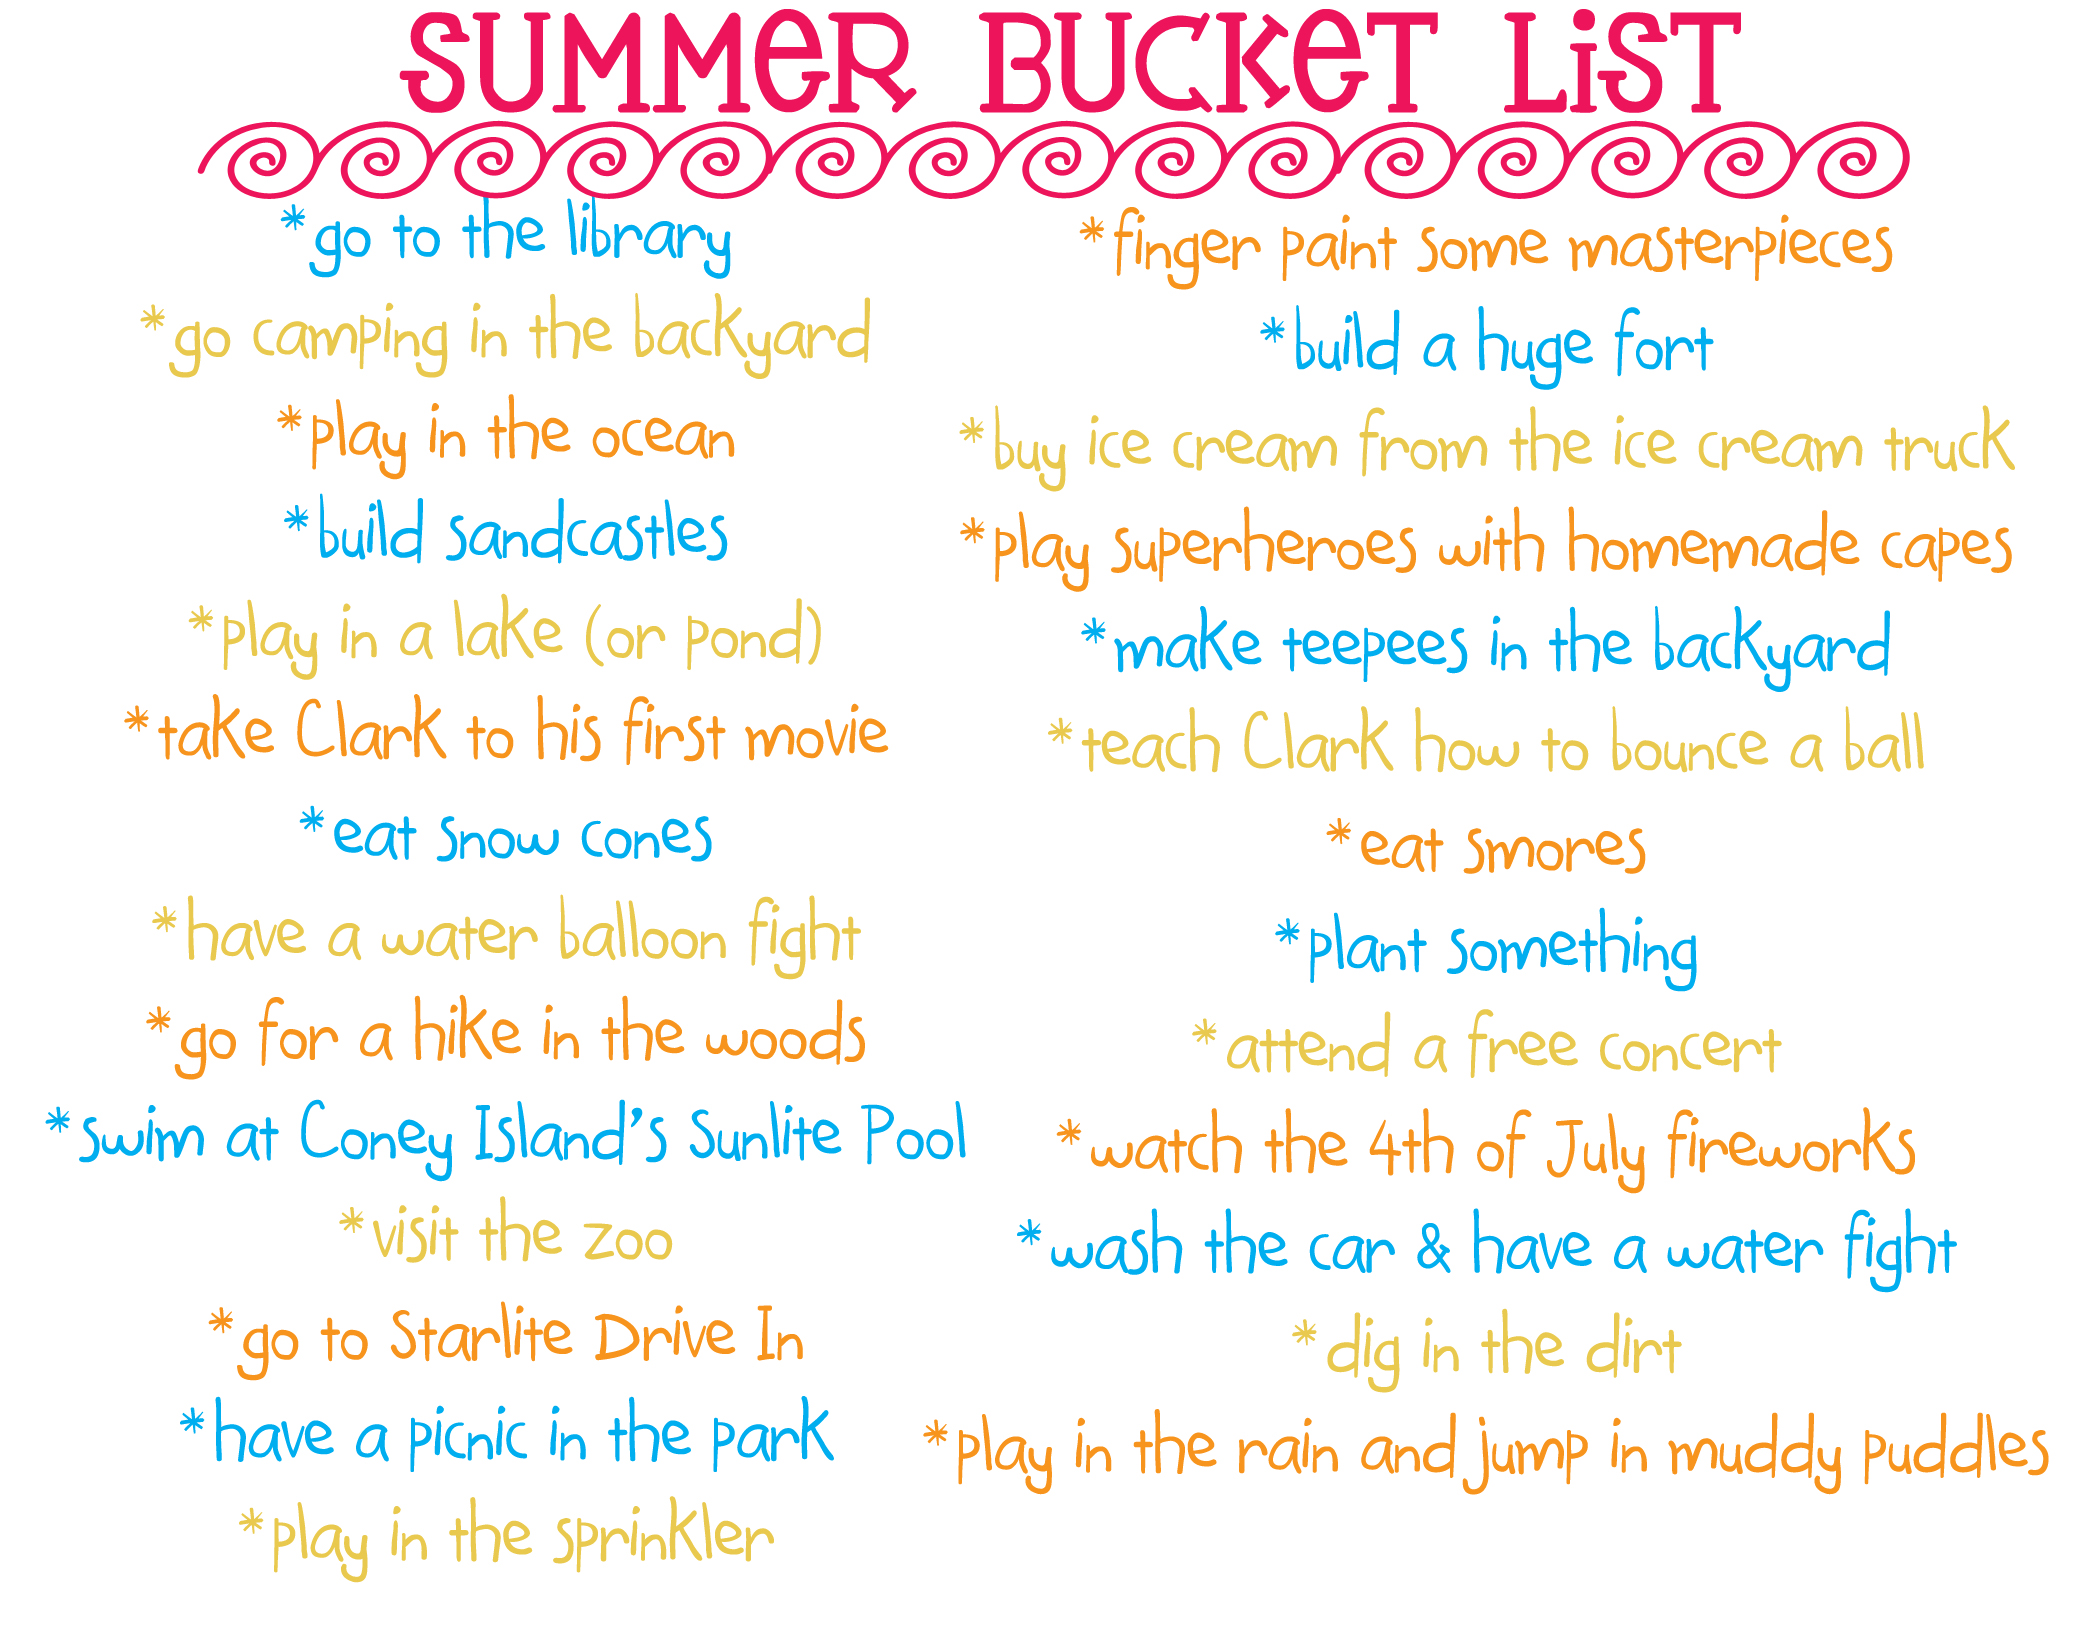 SUMMER BUCKET LIST
*go to the library
*go camping in the backyard
*play in the ocean
*build sandcastles
*play in a lake (or pond)
*take Clark to his first movie
*eat snow cones
*have a water balloon fight
*go for a hike in the woods
*swim at Coney Island's Sunlite Pool
*visit the zoo
*go to Starlite Drive In
*have a picnic in the park
*play in the sprinkler
*finger paint some masterpieces
*build a huge fort
*buy ice cream from the ice cream truck
*play superheroes with homemade capes
*make teepees in the backyard
*teach Clark how to bounce a ball
*eat smores
*plant something
*attend a free concert
*watch the 4th of July fireworks
*wash the car & have a water fight
*dig in the dirt
*play in the rain and jump in muddy puddles